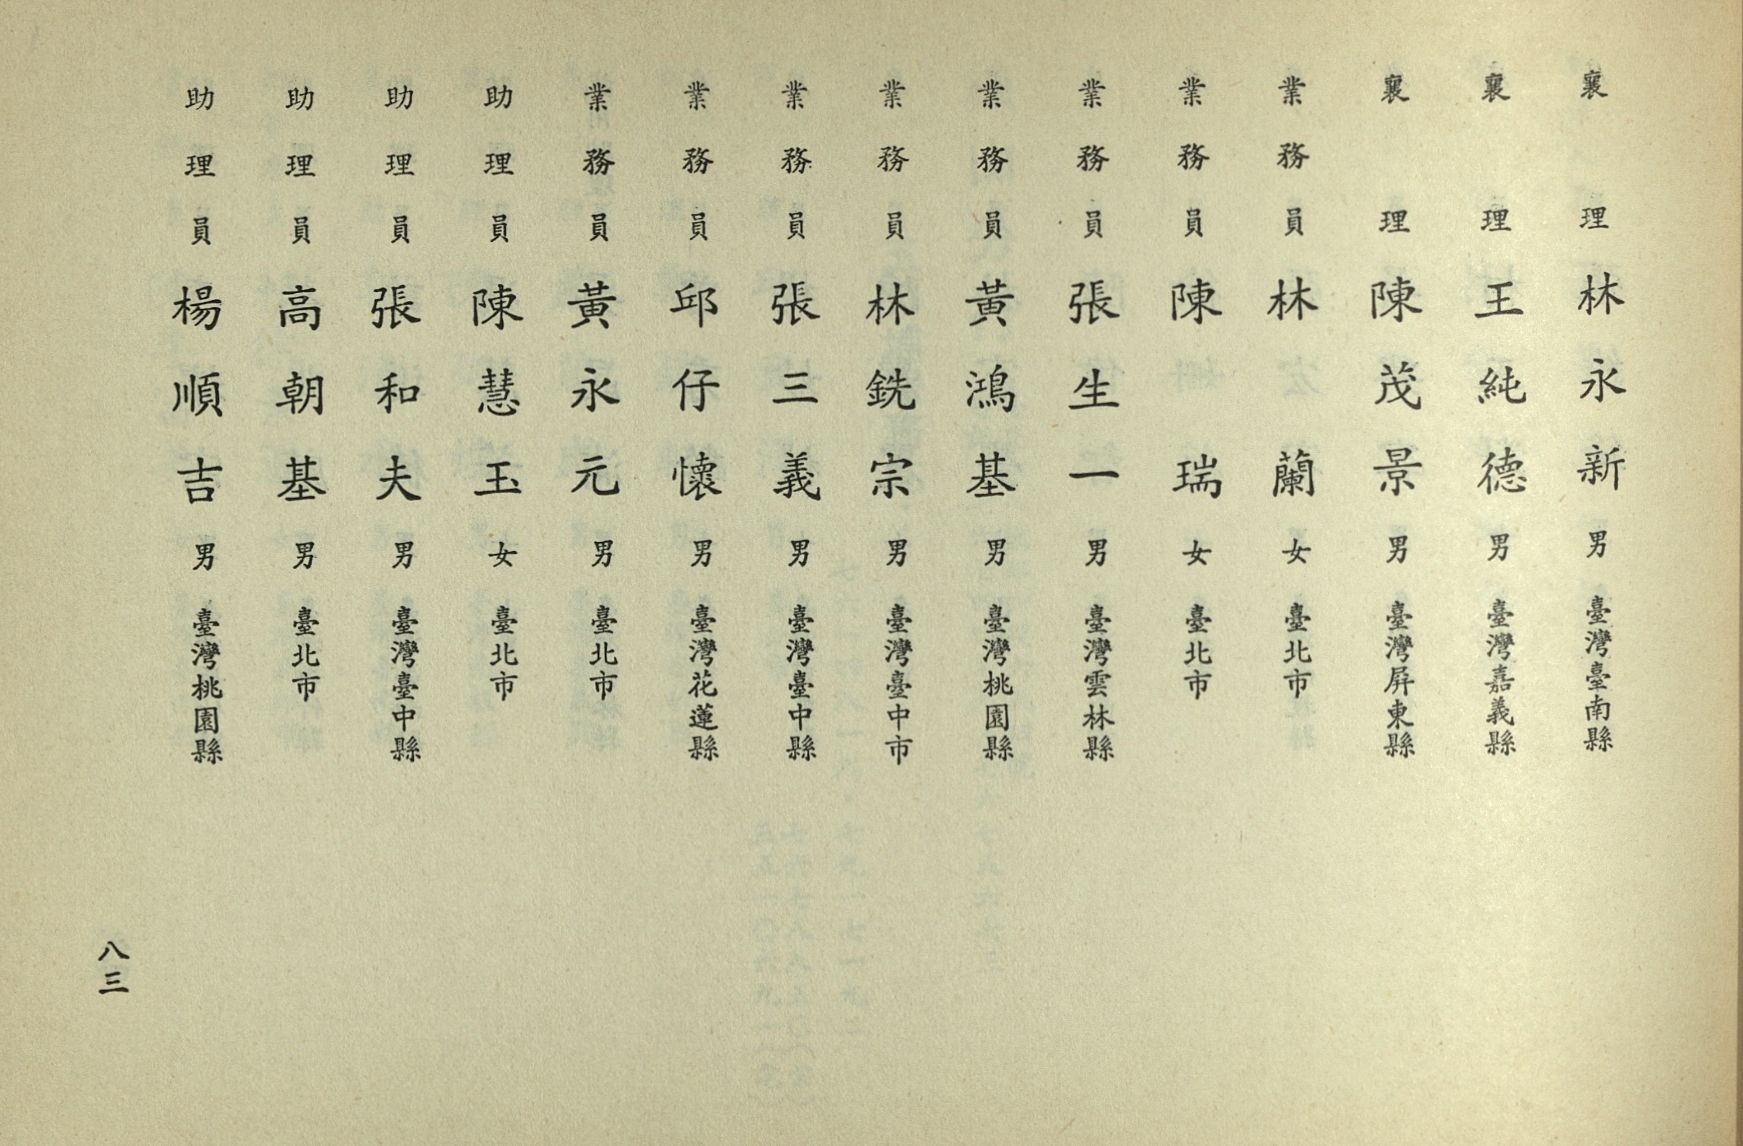 襄理林永新男臺灣臺南縣
襄理王純德男臺灣嘉義縣
襄理陳茂景男臺灣屏東縣
業務員林蘭女臺北市
業務員陳瑞女臺北市
業務員張生一男臺灣雲林縣
業務員黃鴻基男臺灣桃園縣
業務員林銑宗男臺灣臺中市
業務員張三義男臺灣臺中縣
業務員邱仔懷男臺灣花蓮縣
業務員黃永元男臺北市
助理員陳慧玉女臺北市
助理員張和夫男臺灣臺中縣
助理員高朝基男臺北市
助理員楊順吉男臺灣桃園縣
八三